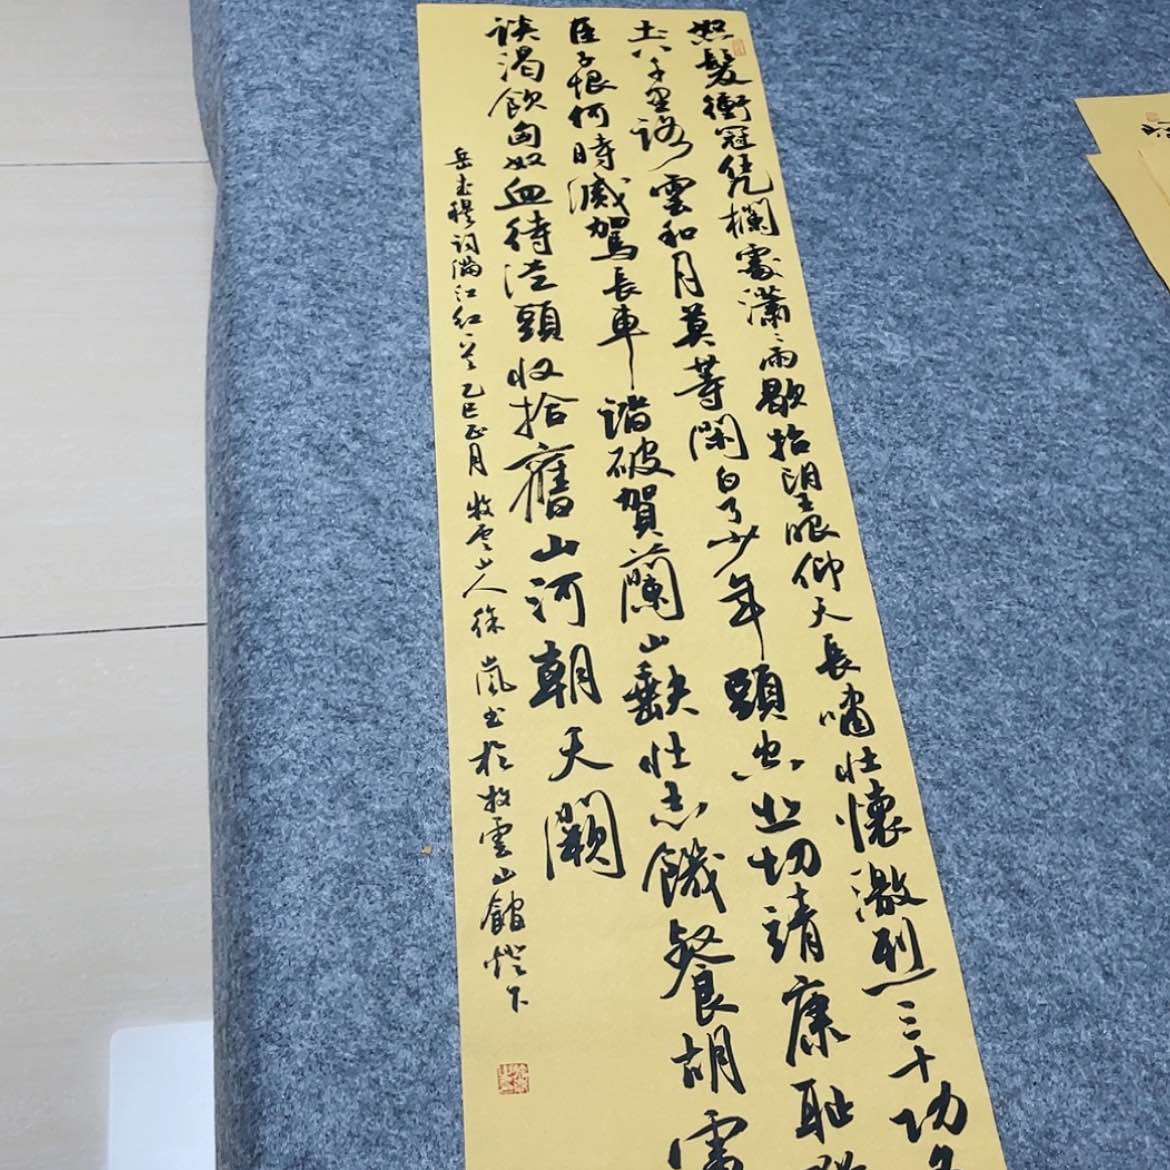 怒髮衝冠凭欄處瀟〻雨歇抬望眼仰天長嘯壯懷激烈三十功名
土八千里路雲和月莫等閑白了少年頭空悲切靖康耻
臣子恨何時滅駕長車踏破賀蘭山缺壯志饑餐胡虜
談渴飲匈奴血待從頭收拾舊山河朝天闕
岳武穆詞滿江紅一首乙巳正月牧雲山人徐嵐書於牧雲山館燈下